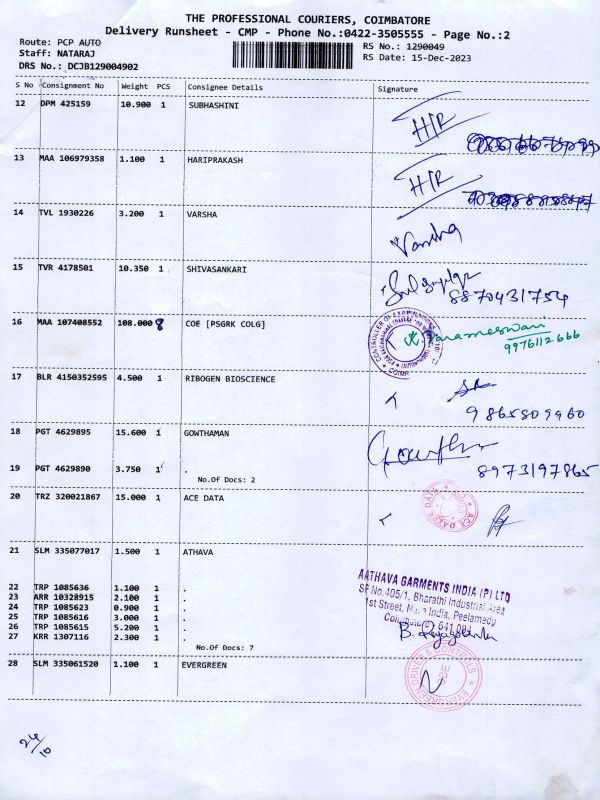 THE PROFESSIONAL COURIERS, COIMBATORE
Delivery Runsheet - CMP - Phone No.:0422-3505555 - Page No.:2
Route: PCP AUTO
RS No.: 1290049
Staff: NATARAJ
RS Date: 15-Dec-2023
DRS No.: DCJB129004902
S No Consignment No Weight PCS Consignee Details Signature
12 DPM 425159 10.900 1 SUBHASHINI
H/R
13 MAA 106979358 1.100 1 HARIPRAKASH
H/R
14 TVL 1930226 3.200 1 VARSHA
Varsha
15 TVR 4178501 10.350 1 SHIVASANKARI
8870431754
16 MAA 107408552 108.000 8 COE [PSGRK COLG]
CONTROLLER OF EXAMINATIONS
Parameswari
9976112666
17 BLR 4150352595 4.500 1 RIBOGEN BIOSCIENCE
9865809960
18 PGT 4629895 15.600 1 GOWTHAMAN
19 PGT 4629890 3.750 1 .
8973197865
No.Of Docs: 2
20 TRZ 320021867 15.000 1 ACE DATA
ACE DATA
21 SLM 335077017 1.500 1 ATHAVA
22 TRP 1085636 1.100 1 .
23 ARR 10328915 2.100 1 .
24 TRP 1085623 0.900 1 .
25 TRP 1085616 3.000 1 .
26 TRP 1085615 5.200 1 .
27 KRR 1307116 2.300 1 .
No.Of Docs: 7
AATHAVA GARMENTS INDIA (P) LTD
SF No.405/1, Bharathi Industrial Area
1st Street, India, Peelamedu
641 004
28 SLM 335061520 1.100 1 EVERGREEN
EVERGREEN DRIVES & CONTROLS
CBE
24/10